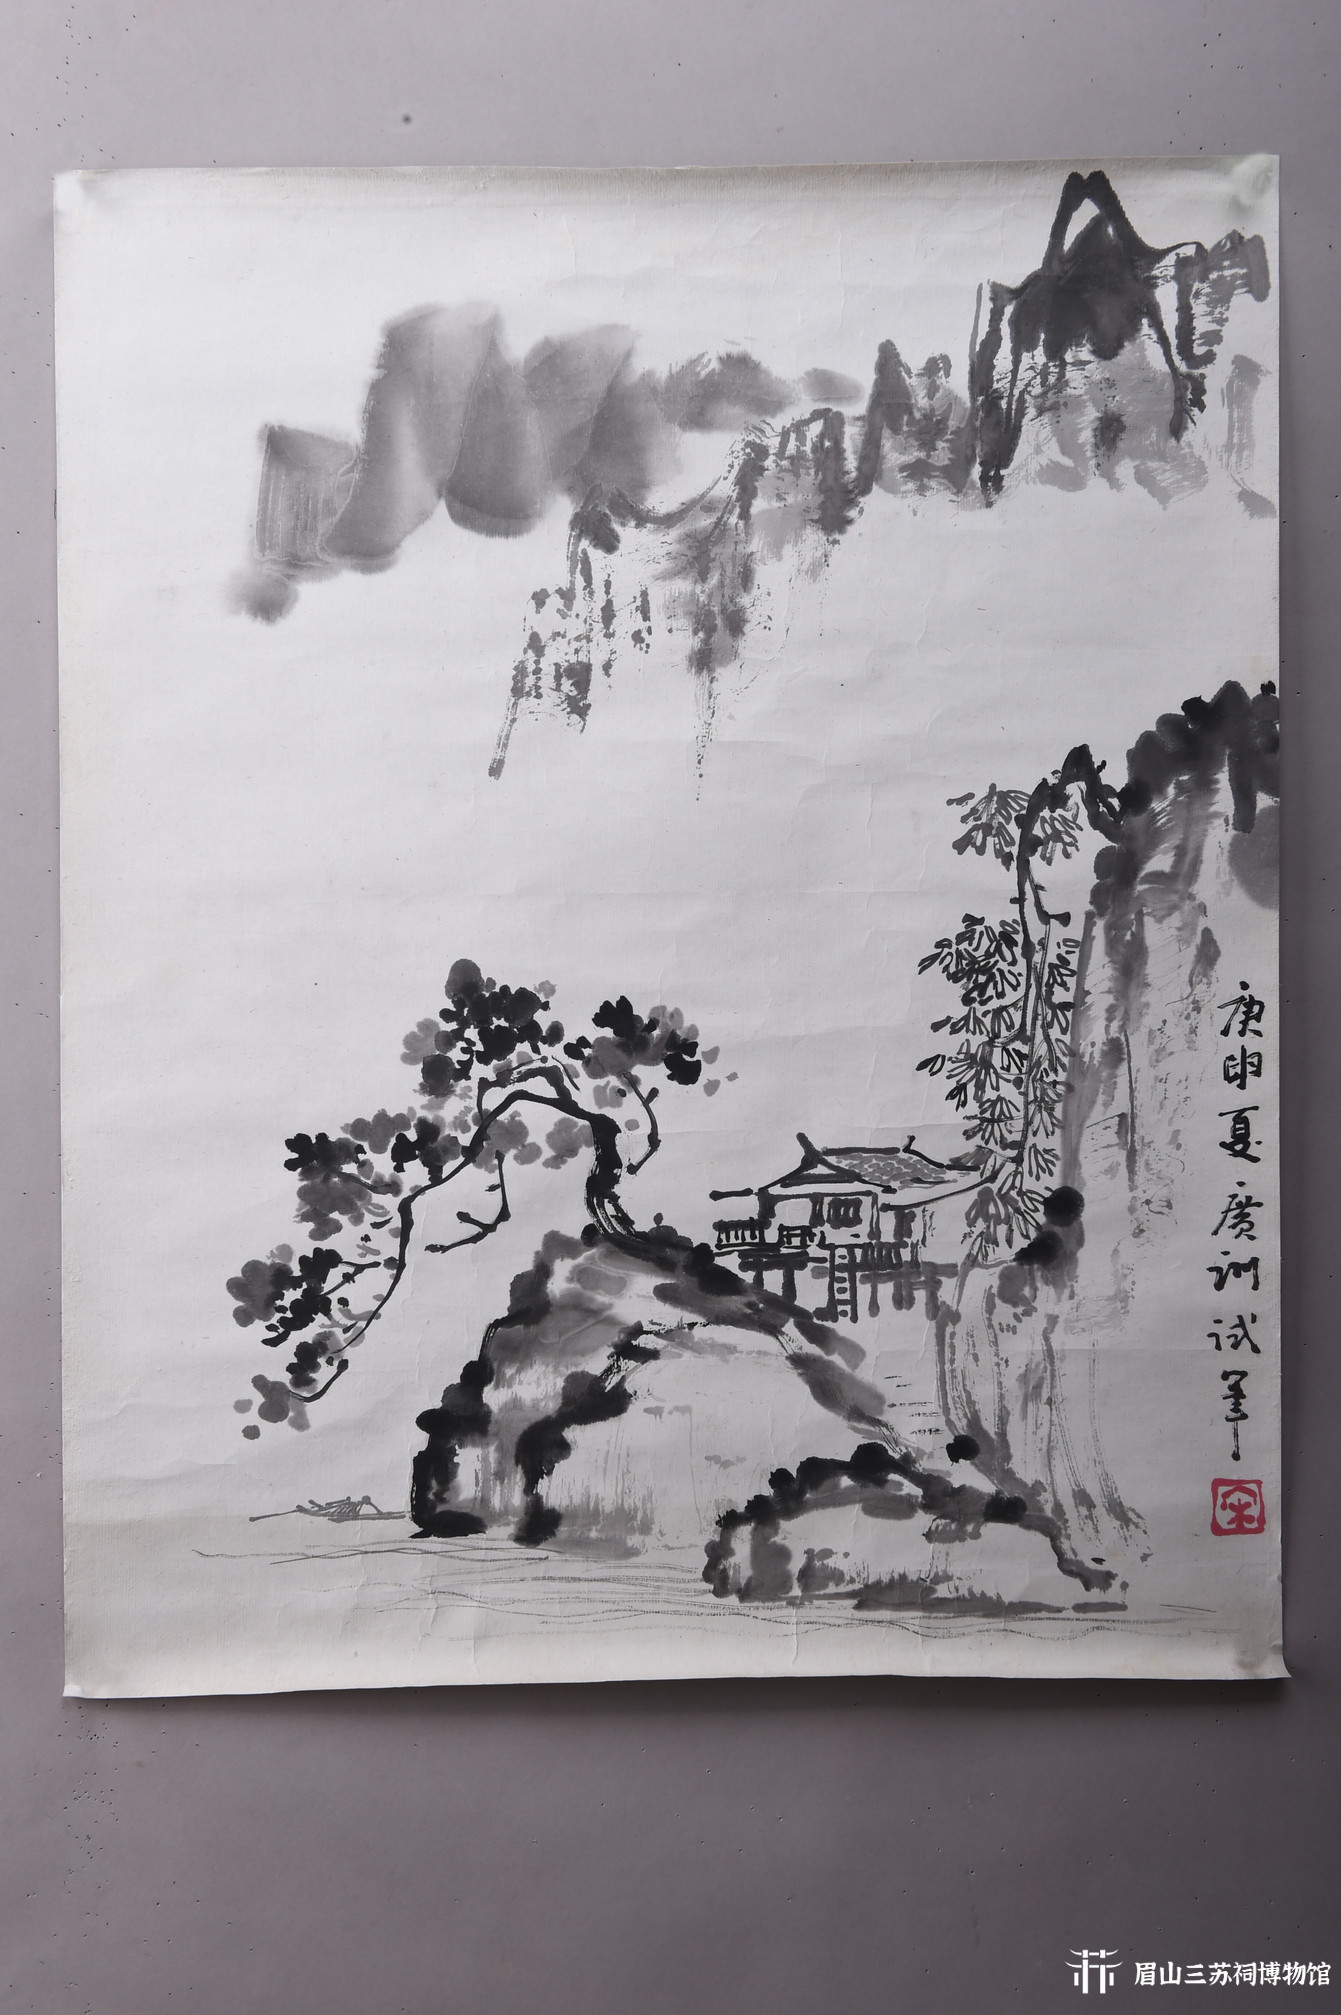 庚申夏广训试笔
宋
眉山三苏祠博物馆